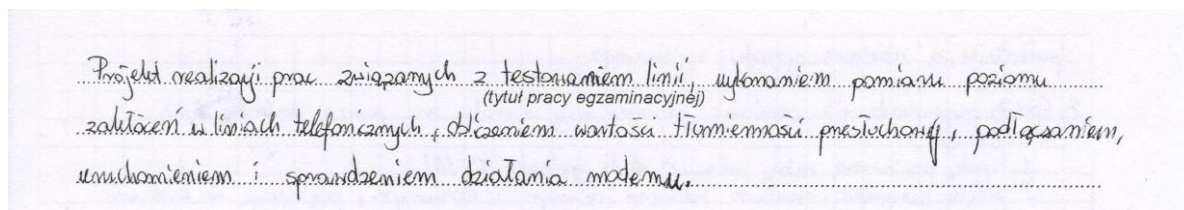 Projekt realizacji prac związanych z testowaniem linii, wykonaniem pomiaru poziomu
(tytuł pracy egzaminacyjnej)
zakłóceń w liniach telefonicznych, obliczeniem wartości tłumienności przesłuchowej, podłączaniem,
uruchomieniem i sprawdzeniem działania modemu.